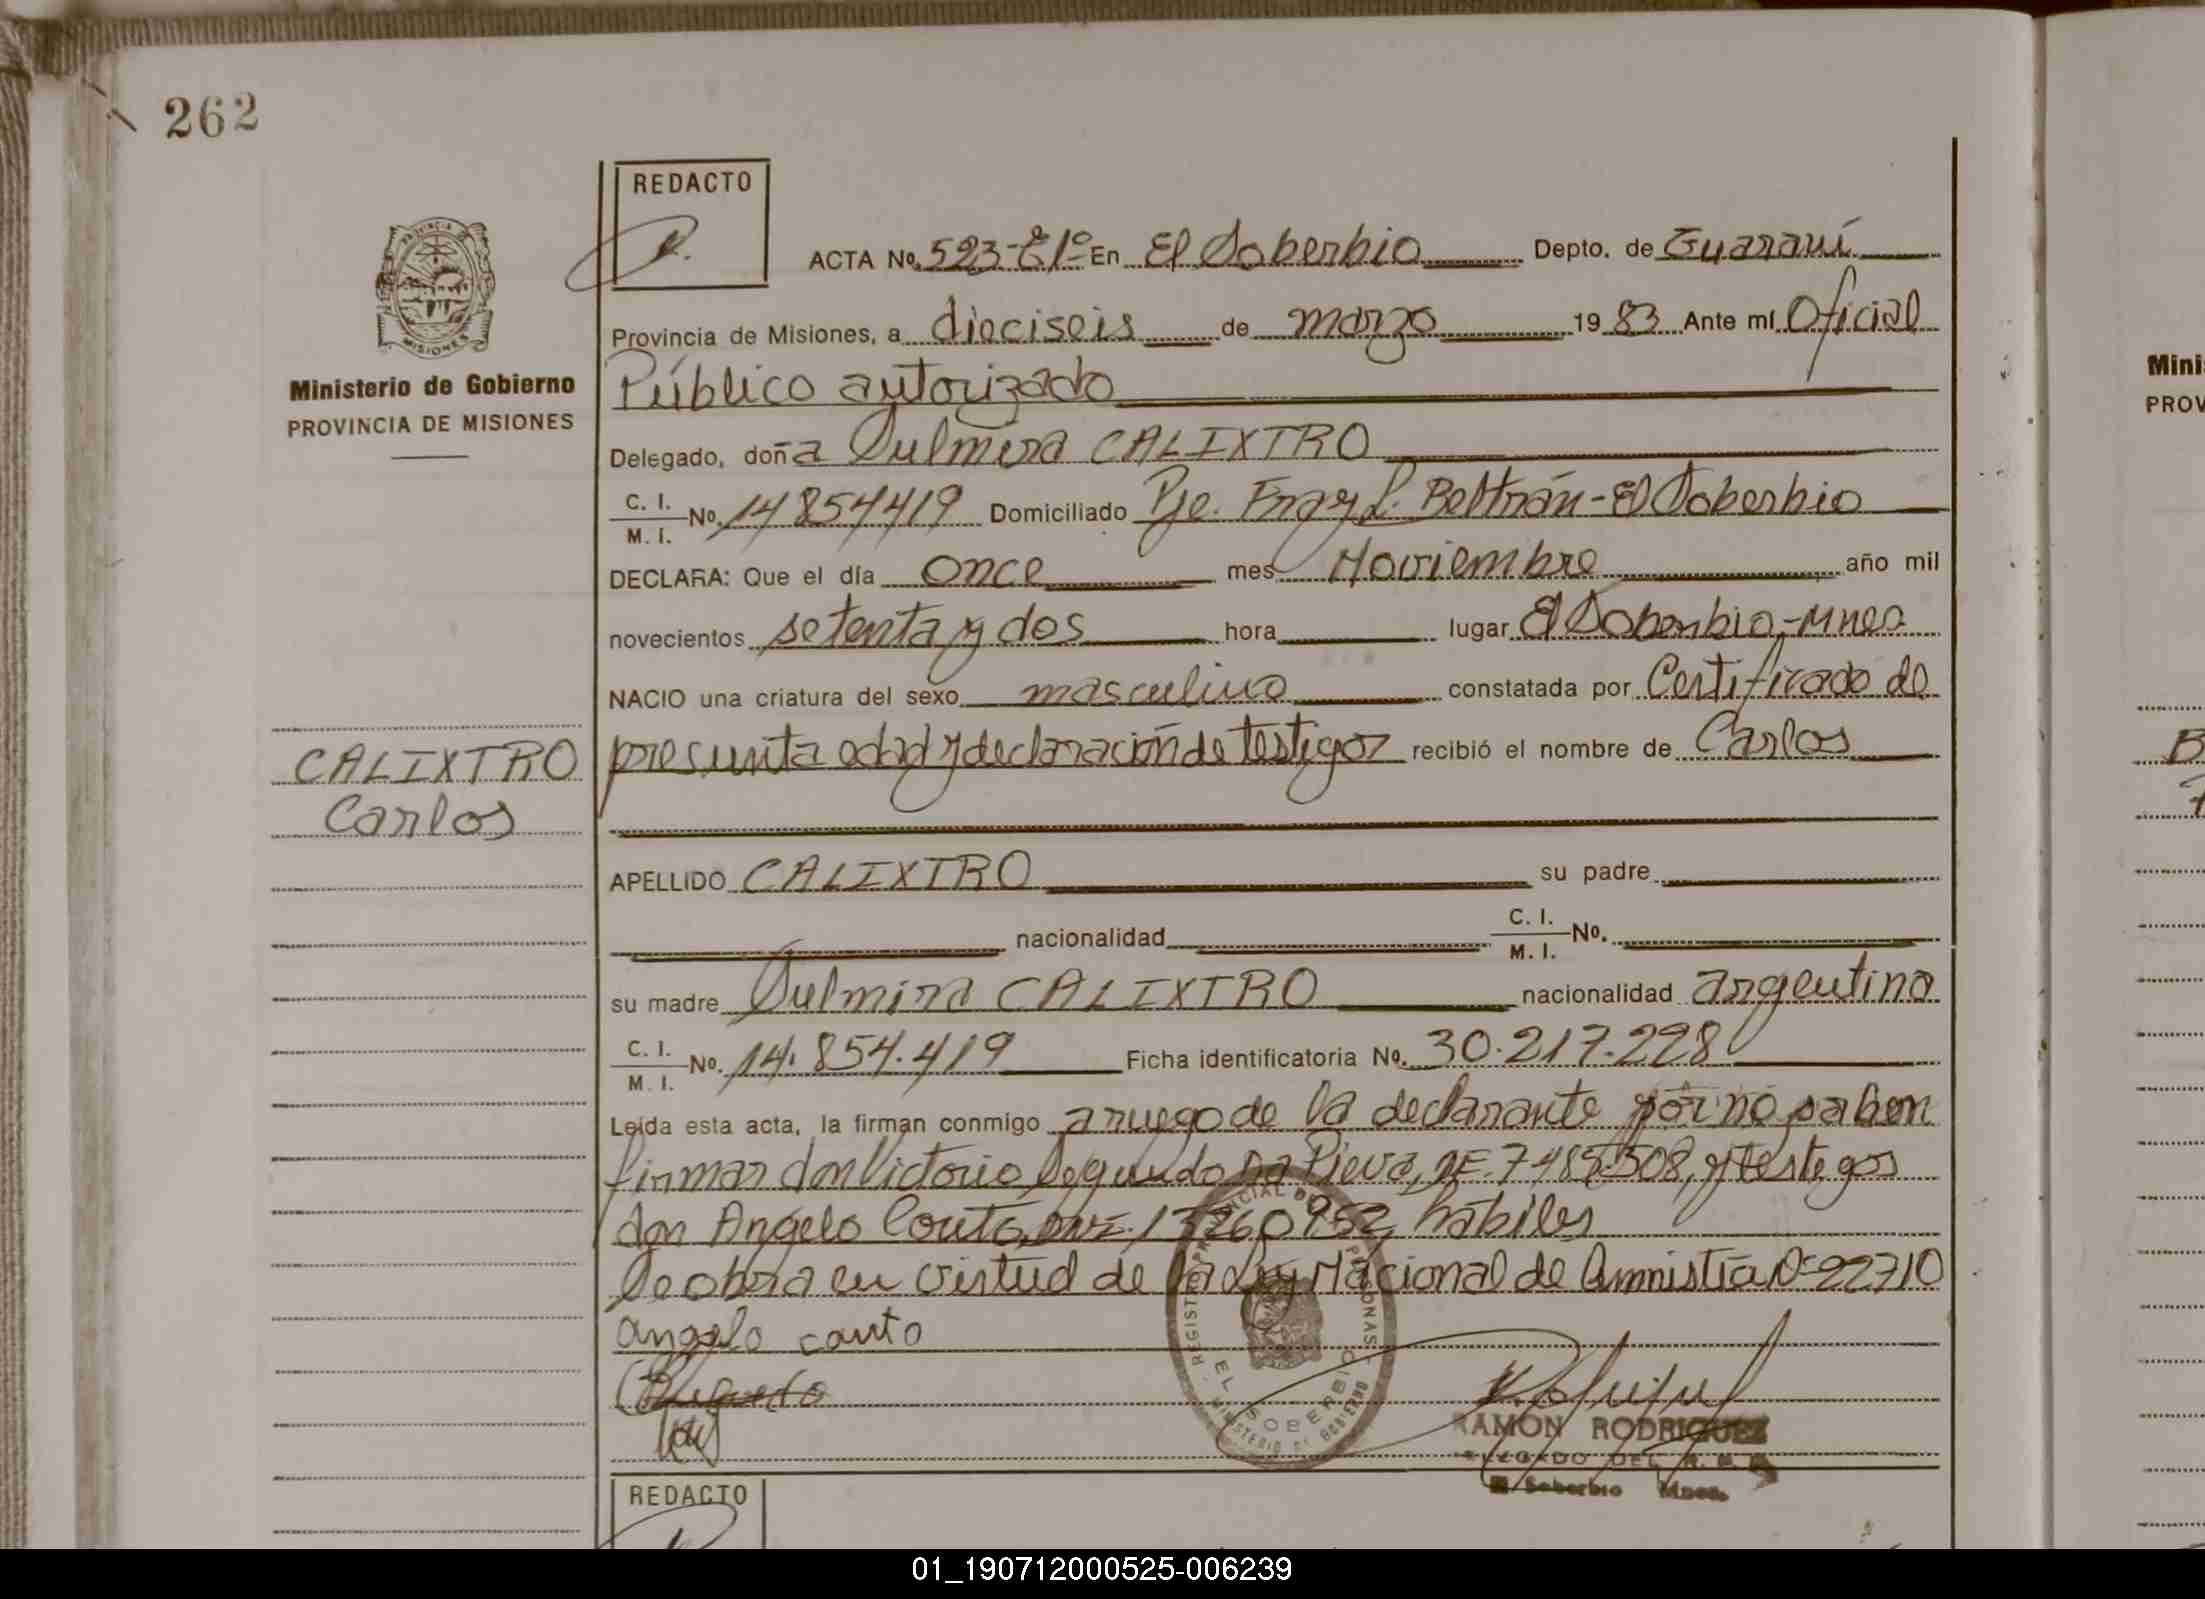 262
REDACTO
PROVINCIA DE
MISIONES
Ministerio de Gobierno
PROVINCIA DE MISIONES
CALIXTRO
Carlos
ACTA No. 523-E1º En El Soberbio Depto. de Guaraní
Provincia de Misiones, a dieciseis de marzo 19 83 Ante mí Oficial
Público autorizado
Delegado, doña Dulmira CALIXTRO
C. I.
M. I. No. 14854419 Domiciliado Pje. Fray L. Beltrán - El Soberbio
DECLARA: Que el día once mes Noviembre año mil
novecientos setenta y dos hora lugar El Soberbio-Mnes
NACIO una criatura del sexo masculino constatada por Certificado de
presunta edad y declaración de testigos recibió el nombre de Carlos
APELLIDO CALIXTRO su padre
nacionalidad C. I.
M. I. No.
su madre Dulmira CALIXTRO nacionalidad argentina
C. I.
M. I. No. 14.854.419 Ficha identificatoria No. 30.217.228
Leída esta acta, la firman conmigo a ruego de la declarante por no saber
firmar don Victorio Segundo Da Pieva, 7.485.508, y testigos
don Angelo Couto, DNI. 13260952, hábiles
Se obra en virtud de la Ley Nacional de Amnistía Nº 22710
angelo couto
REGISTRO PROVINCIAL DE PERSONAS
EL SOBERBIO
MINISTERIO DE GOBIERNO
RAMON RODRIGUEZ
DELEGADO DEL R. P.
El Soberbio Mnes.
REDACTO
Mini
PROV
B
01_190712000525-006239